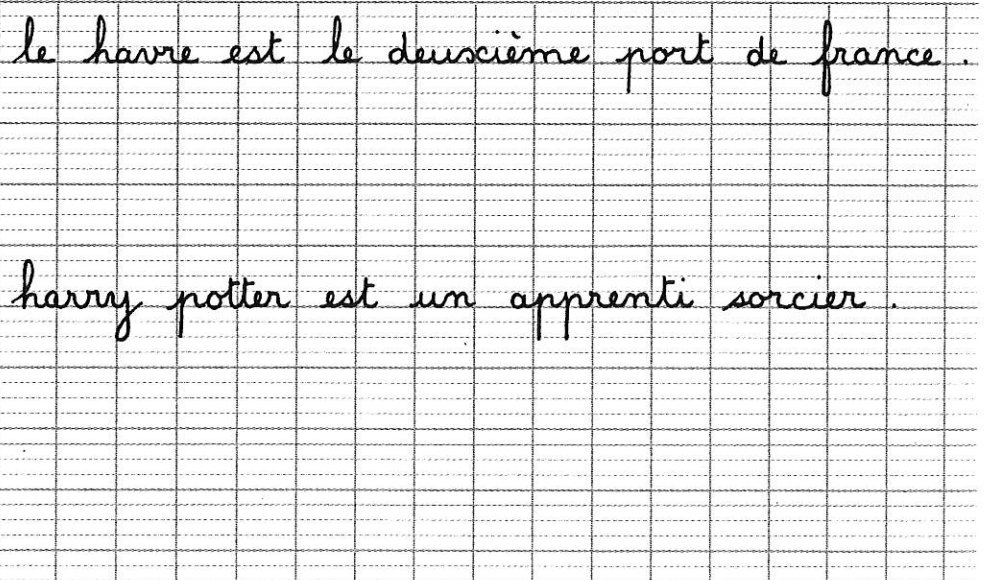 le havre est le deuxième port de france.
harry potter est un apprenti sorcier.